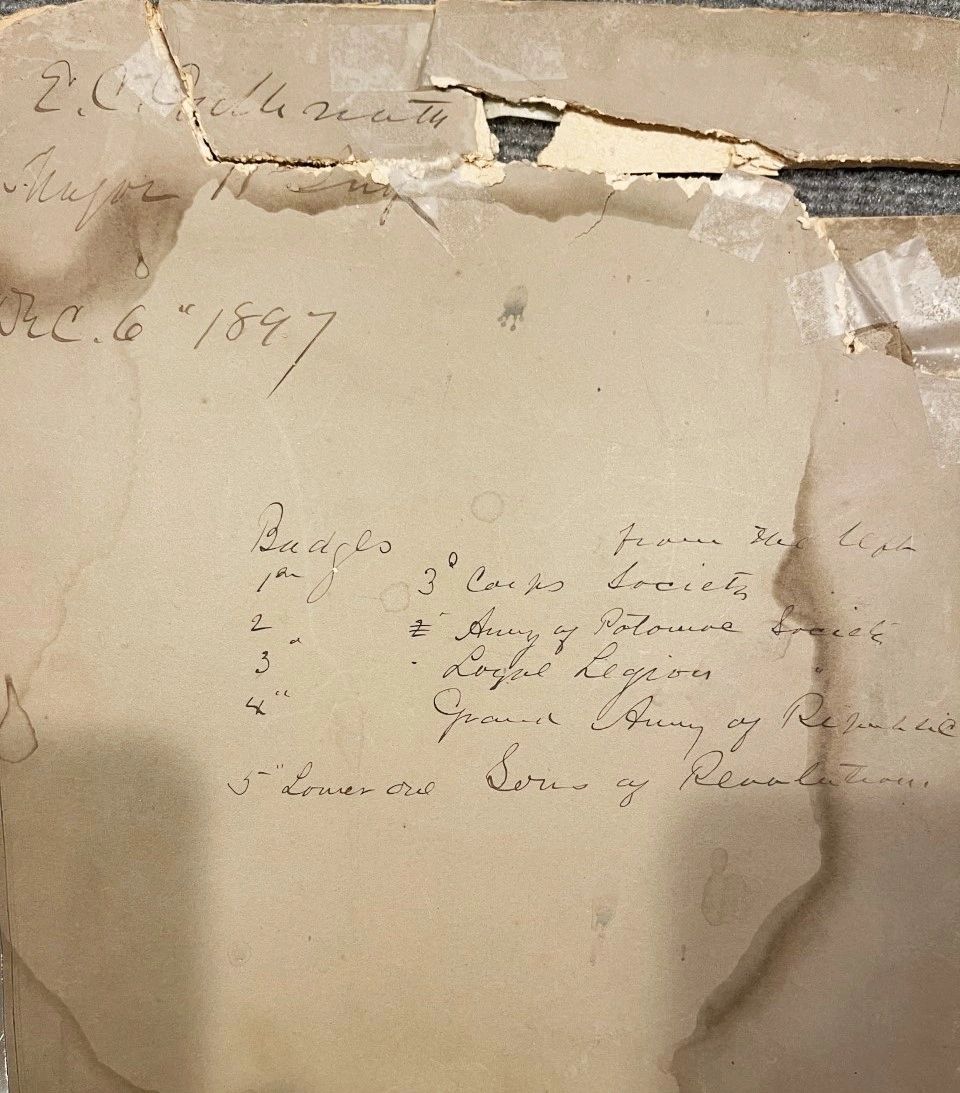 E. C.
Major 11" Inf
Dec. 6" 1897
Badges from the left
1st 3d Corps Society
2 " Army of Potomac Society
3 " Loyal Legion "
4" Grand Army of Republic
5" Lower one Sons of Revolution.